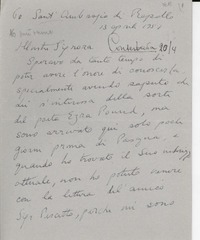 60 Sant' Ambrogio di Rapallo
13 aprile 195
Illustre Signora
Contestada 20/4
Speravo da tanto tempo di
poter avere l'onore di conoscerla
specialmente avendo saputo che
si interessa della sorte
del poeta Ezra Pound, ma
sono arrivata qui solo pochi
giorni prima di Pasqua, e
quando ho trovato il Suo indirizzo
attuale, non ho potuto venire
con la lettera dell'amico
Sgr. perchè mi sono